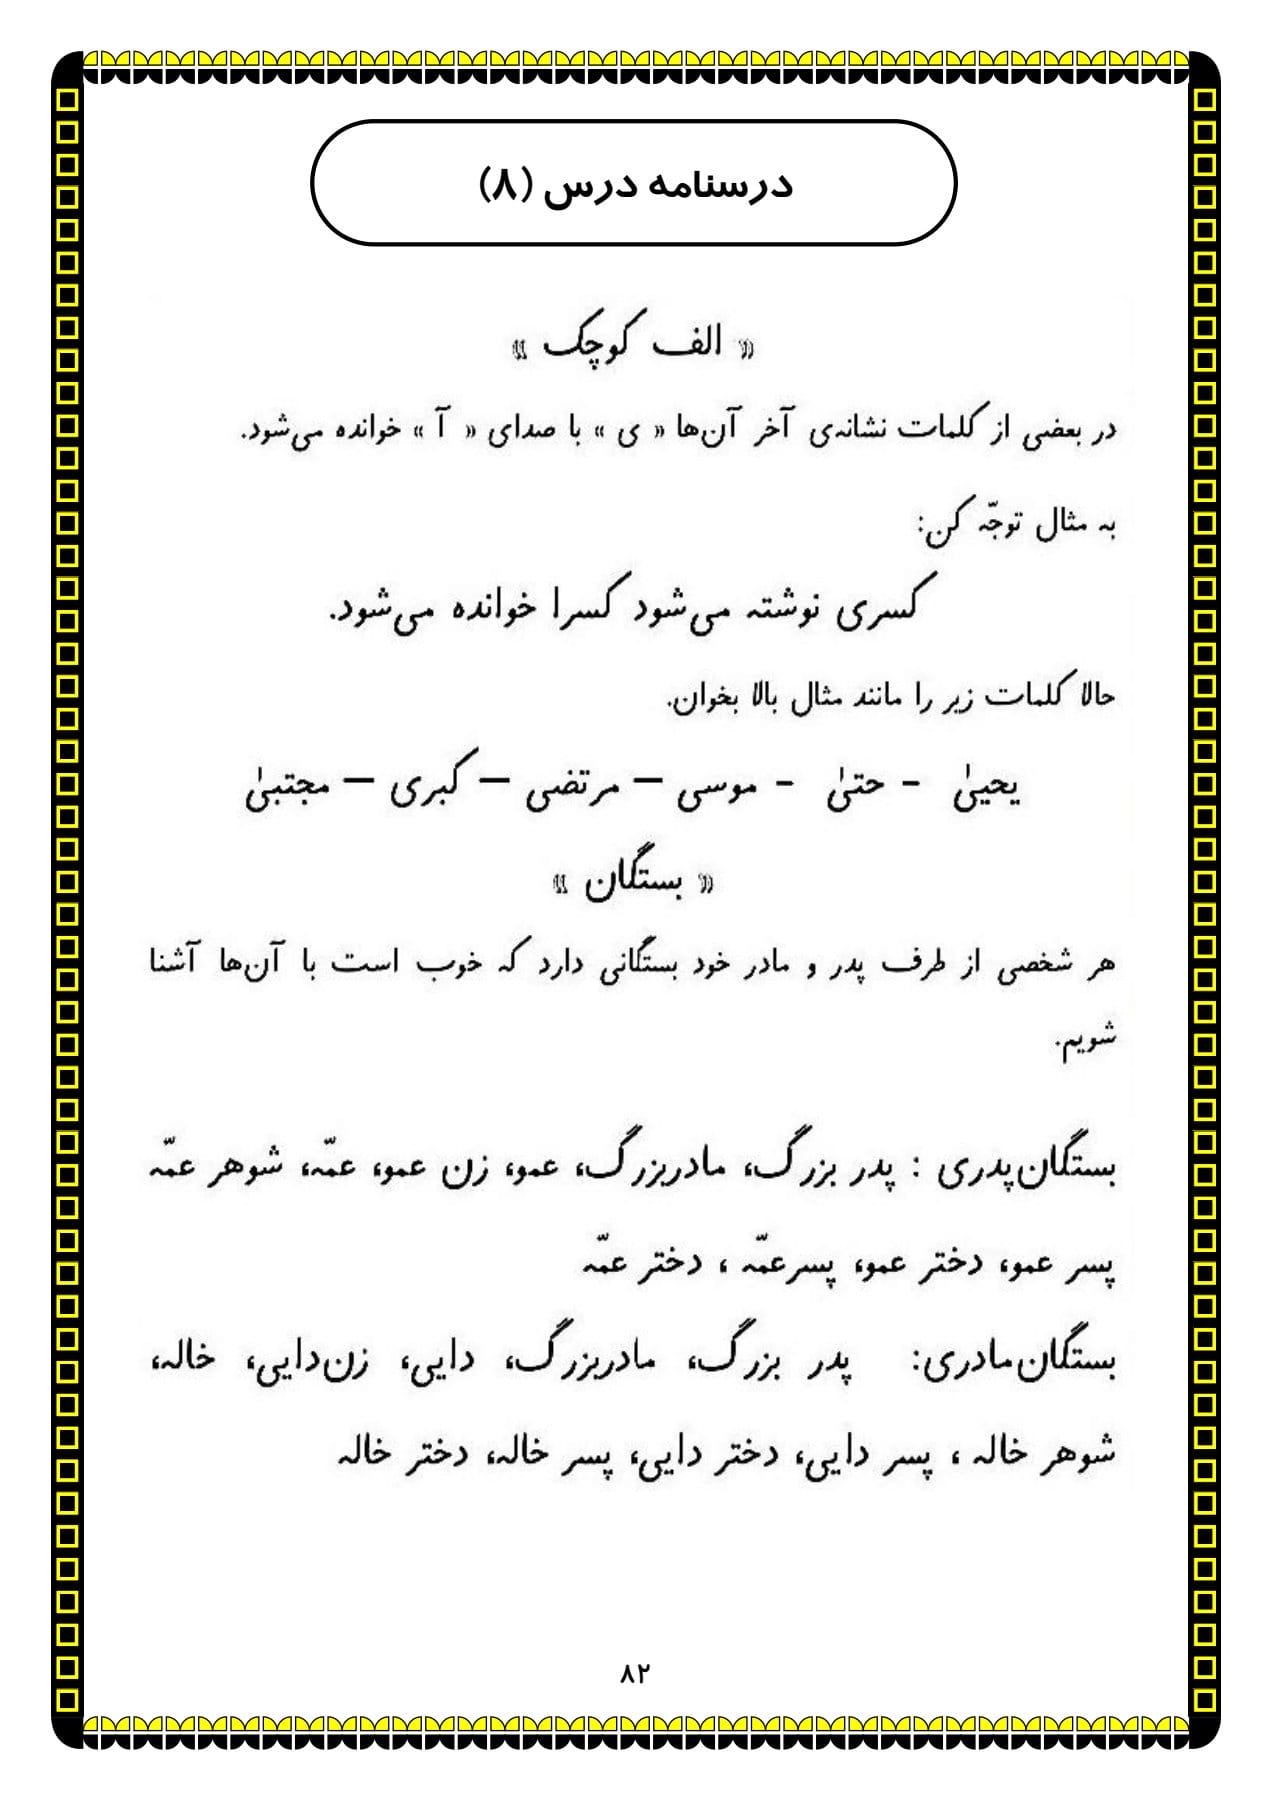 درسنامه درس (۸)
« الف کوچک »
در بعضی از کلمات نشانه‌ی آخر آن‌ها « ی » با صدای « آ » خوانده می‌شود.
به مثال توجّه کن:
کسری نوشته می‌شود کسرا خوانده می‌شود.
حالا کلمات زیر را مانند مثال بالا بخوان.
یحییٰ - حتیٰ - موسی – مرتضی – کبری – مجتبیٰ
« بستگان »
هر شخصی از طرف پدر و مادر خود بستگانی دارد که خوب است با آن‌ها آشنا
شویم.
بستگان‌پدری : پدر بزرگ، مادربزرگ، عمو، زن عمو، عمّه، شوهر عمّه
پسر عمو، دختر عمو، پسرعمّه ، دختر عمّه
بستگان‌مادری: پدر بزرگ، مادربزرگ، دایی، زن‌دایی، خاله،
شوهر خاله ، پسر دایی، دختر دایی، پسر خاله، دختر خاله
۸۲